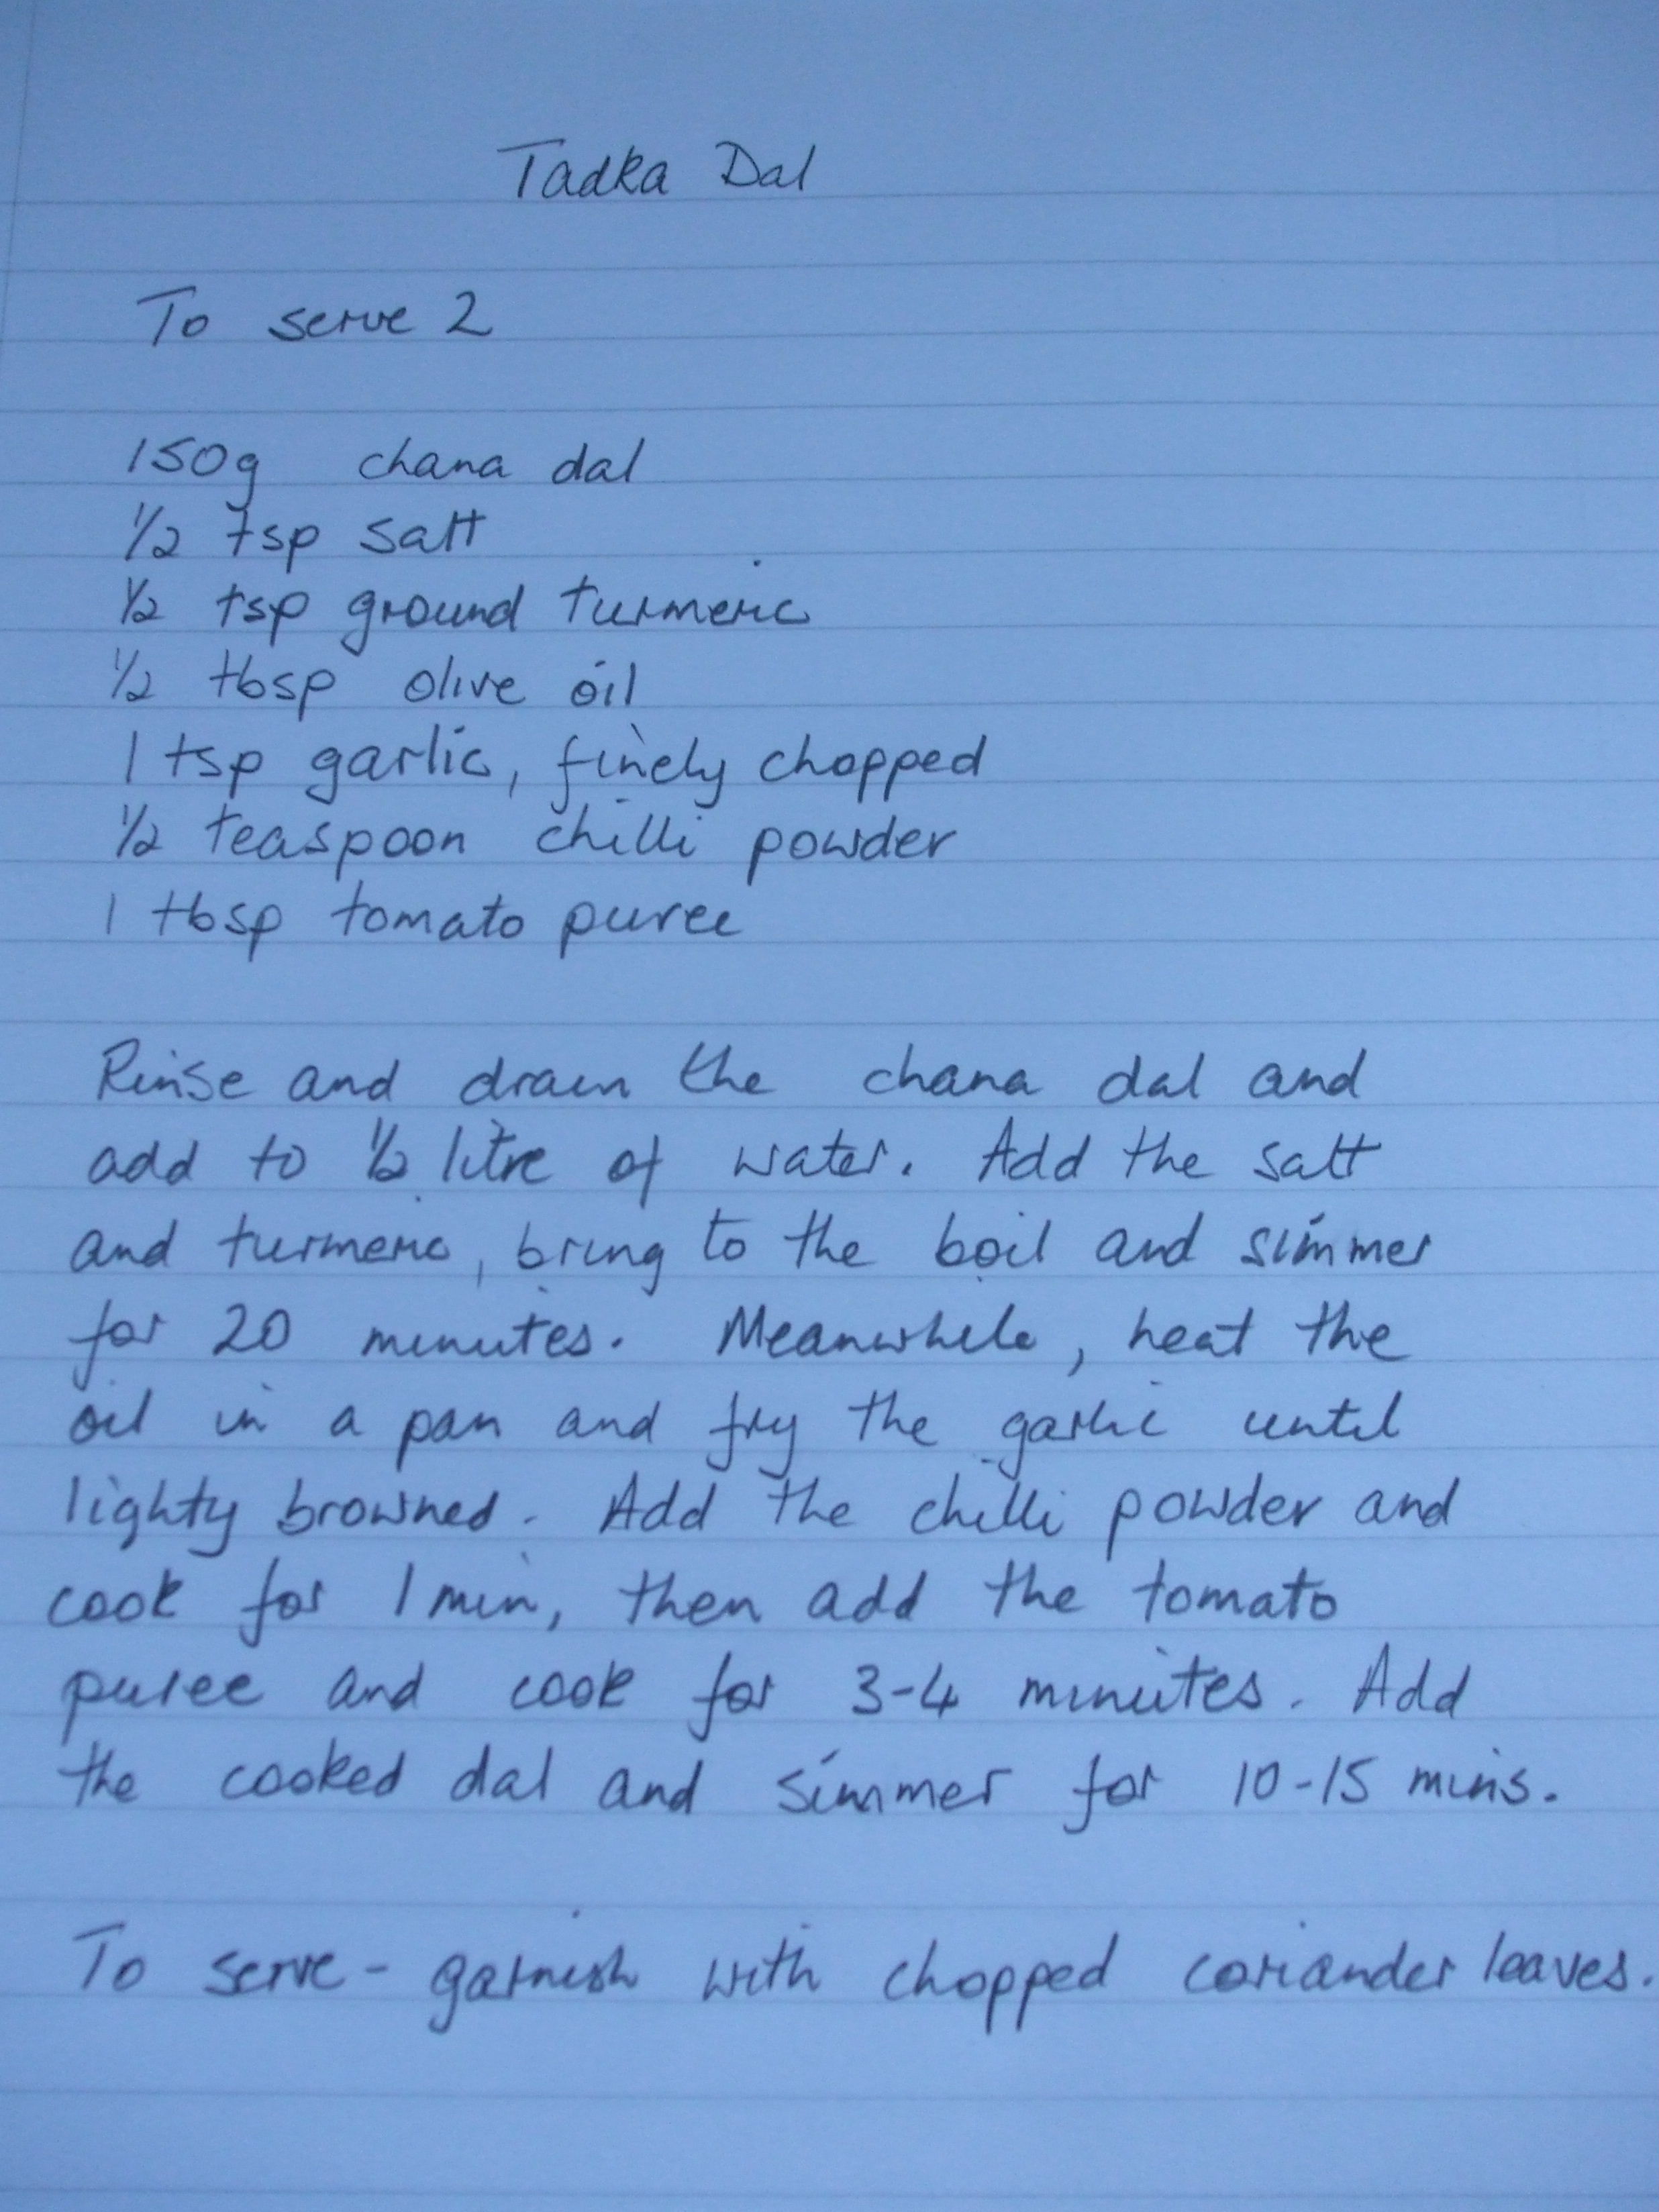 Tadka Dal
To serve 2
150g chana dal
1/2 tsp salt
1/2 tsp ground turmeric
1/2 tbsp olive oil
1 tsp garlic, finely chopped
1/2 teaspoon chilli powder
1 tbsp tomato puree
Rinse and drain the chana dal and
add to 1/2 litre of water. Add the salt
and turmeric, bring to the boil and simmer
for 20 minutes. Meanwhile, heat the
oil in a pan and fry the garlic until
lighty browned. Add the chilli powder and
cook for 1 min, then add the tomato
puree and cook for 3-4 minutes. Add
the cooked dal and simmer for 10-15 mins.
To serve - garnish with chopped coriander leaves.